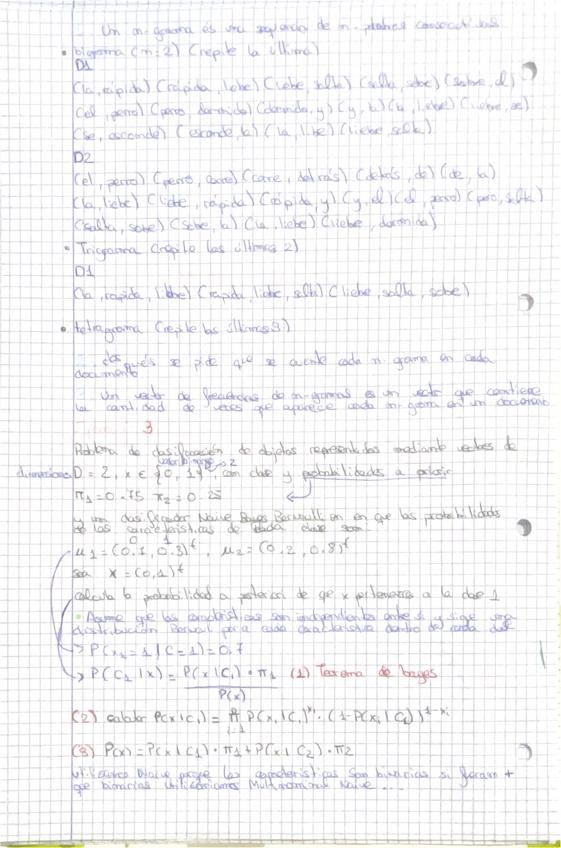 Un n-grama es una sequencia de n-palabras consecutivas
• bigrama (n=2) (repite la última)
D1
(la, rápida) (rápida, liebre) (liebre, salta) (salta, sobre) (sobre, el)
(el, perro) (perro, dormido) (y, la) (la, liebre) (liebre, se)
(se, esconde) (esconde, la) (la, liebre) (liebre, salta)
D2
(el, perro) (perro, corre) (corre, detrás) (detrás, de) (de, la)
(la, liebre) (liebre, rápida) (rápida, y) (y, el) (el, perro) (perro, salta)
(salta, sobre) (sobre, la) (la, liebre) (liebre, dormida)
• Trigrama (repite las últimas 2)
D1
(la, rapida, liebre) (rapida, liebre, salta) (liebre, salta, sobre)
• tetragrama (repite las últimas 3)
después se pide que se cuente cada n-grama en cada
documento
Un vector de frecuencias de n-gramas es un vector que contiene
la cantidad de veces que aparece cada n-gram en un documento
3
Problema de clasificación de objetos representados mediante vectores de
dimensiones D = 2, x ∈ {0, 1}, con clase y probabilidades a priori
π1 = 0.75 π2 = 0.25
y un clasificador Naive Bayes Bernoulli en que las probabilidades
de las características de cada clase son:
0 1
μ1 = (0.1, 0.3)ᵗ, μ2 = (0.2, 0.8)ᵗ
sea x = (0,1)ᵗ
calcula la probabilidad a posteriori de que x pertenezca a la clase 1
• Asume que las características son independientes entre sí y sigue una
distribución Bernoulli para cada característica dentro de cada clase
→ P(x1 = 1 | C = 1) = 0.7
→ P(C1 | x) = P(x | C1) · π1 (1) Teorema de bayes
P(x)
(2) calcular P(x | C1) = P(x, | C1)ˣⁱ · (1 - P(xi | C1))¹⁻ˣⁱ
i=1
(3) P(x) = P(x | C1) · π1 + P(x | C2) · π2
utilizamos Naive porque las características son binarias si fueran +
que binarias utilizaríamos Multinominal Naive ...